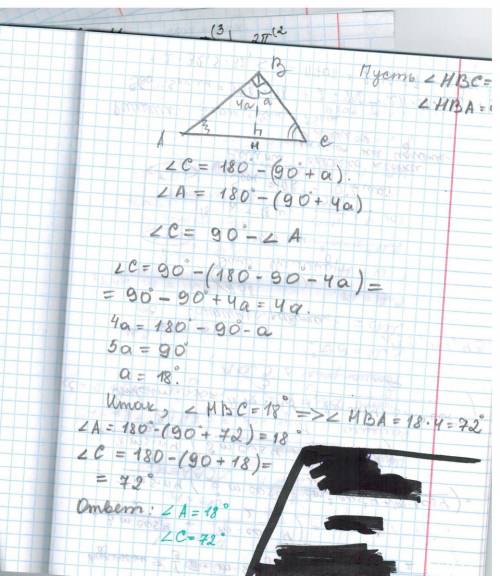 Пусть ∠HBC=
∠HBA=
B
4a a
A H C
∠C = 180°-(90°+a).
∠A = 180°-(90°+4a)
∠C = 90°-∠A
∠C=90°-(180°-90°-4a)=
=90°-90°+4a=4a.
4a=180°-90°-a
5a=90°
a=18°.
Итак, ∠HBC=18° =>∠HBA=18·4=72°
∠A=180°-(90°+72)=18°
∠C=180-(90+18)=
=72°
Ответ: ∠A=18°
∠C=72°